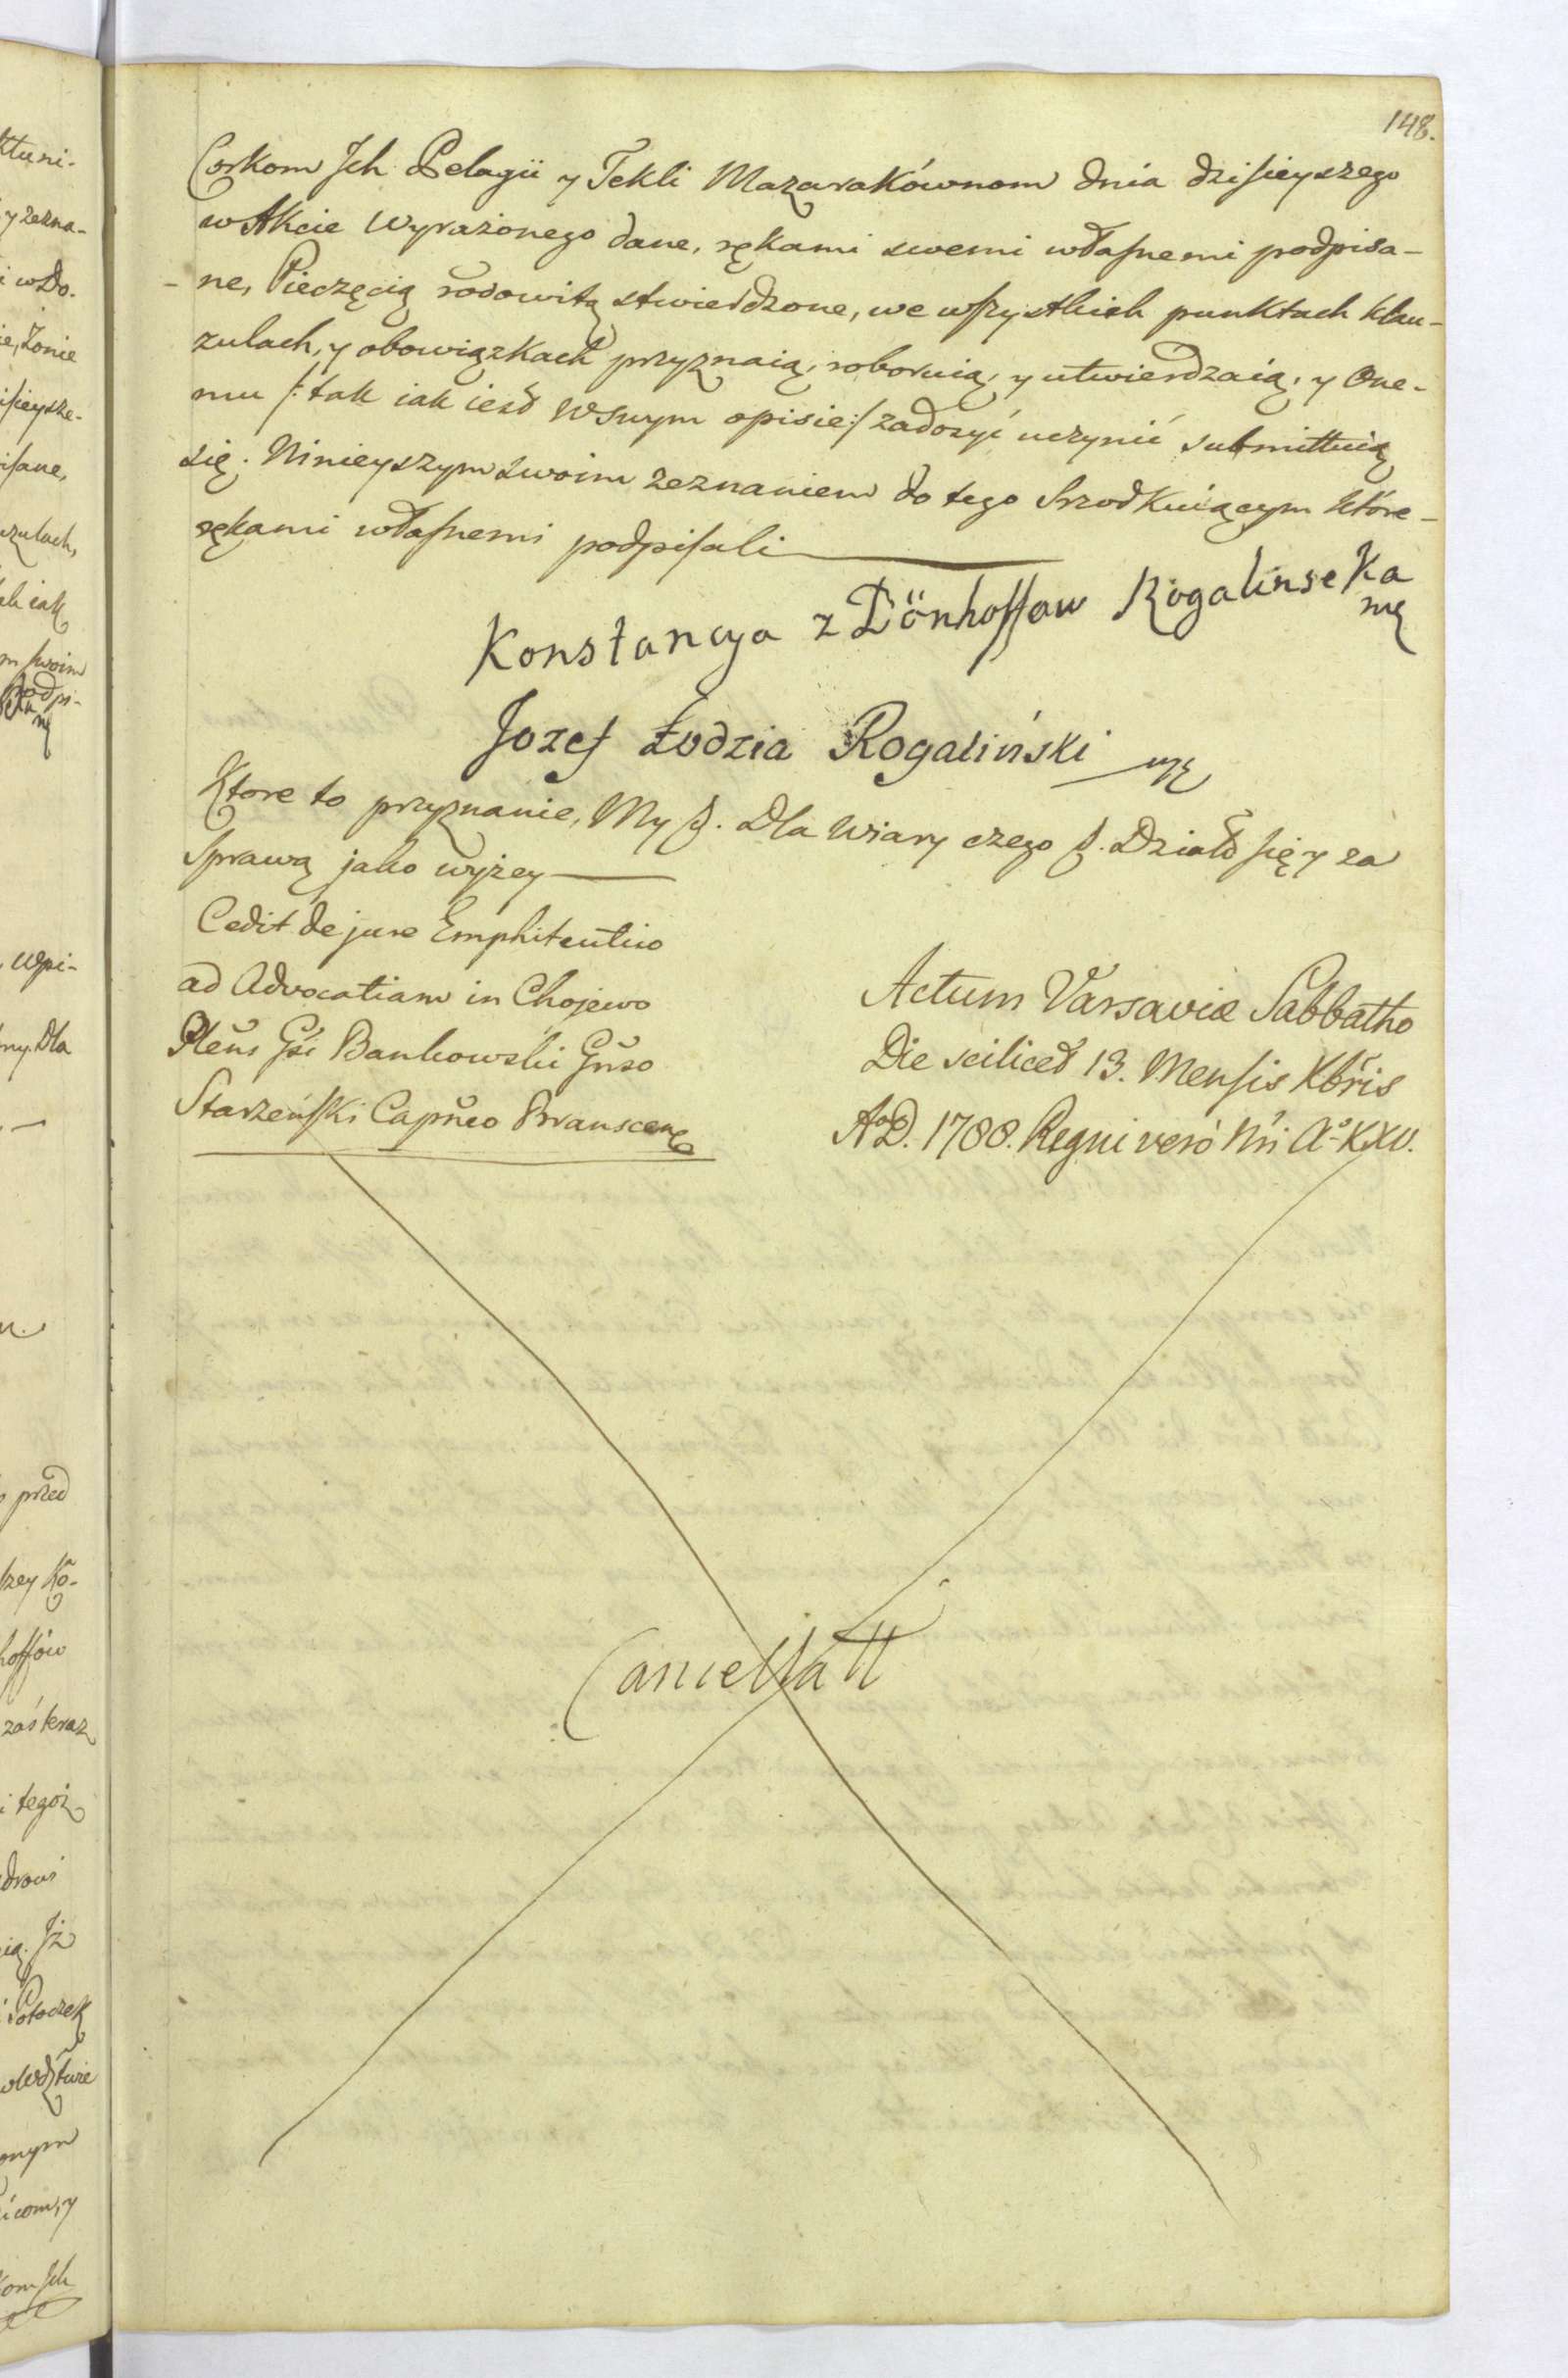 148.
Corkom Jch Pelagii y Tekli Mazarakównom dnia dzisieyszego
w Akcie Wyrażonego dane, rękami swemi własnemi podpisa-
-ne, Pieczęcią rodowitą stwierdzone, we wszystkich punktach klau-
zulach, y obowiązkach przyznaią, roboruią, y utwierdzaią, y One-
mu /: tak iak iest w swym opisie :/ zadosyć uczynić submittuią
się. Ninieyszym swoim zeznaniem do tego Srzodkuiącym które
rękami własnemi podpisali
Konstancya z Dönhoffow Rogalinska
mę
Jozef Łodzia Rogaliński mę
Ktore to przyznanie, My &. Dla Wiary czego &. Działo się y za
Sprawą jako wyżey
Cedit de jure Emphiteutico
ad Advocatiam in Chojewo
Plēus Gsi Bankowski Gnso
Starzeński Capneo Branscen
Actum Varsaviæ Sabbatho
Die scilicet 13. Mensis Xbris
AoD. 1788. Regni verò Nri Ao XXV.
Cancellatt
ktuni-
y zezna-
i wdo.
ie, Żonie
isieysze-
isane,
uzulach,
ch iak
m swoim
podpi-
mę
Wpi-
ny. Dla
przed
szey Kō-
hoffów
zaś teraz
i tegoż
ią. Iż
Potoczek
onym
icom, y
kom Jch